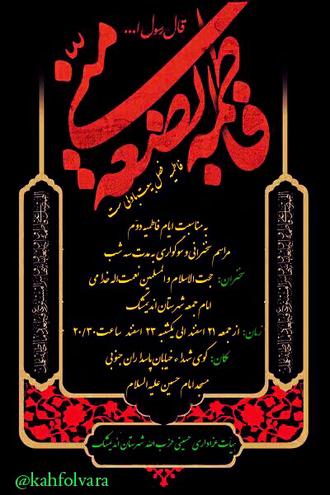 قال رسول ا...
فاطمة بضعة منی
به مناسبت ایام فاطمیه دوم
مراسم سخنرانی و سوگواری به مدت سه شب
سخنران: حجت الاسلام والمسلمین نعمت اله خدامی
امام جمعه شهرستان اندیمشک
زمان: از جمعه ۲۱ اسفند الی یکشنبه ۲۳ اسفند ساعت ۲۰/۳۰
مکان: کوی شهداء خیابان پاسداران جنوبی
مسجد امام حسین علیه السلام
هیأت عزاداری حسینی حزب الله شهرستان اندیمشک
@kahfolvara